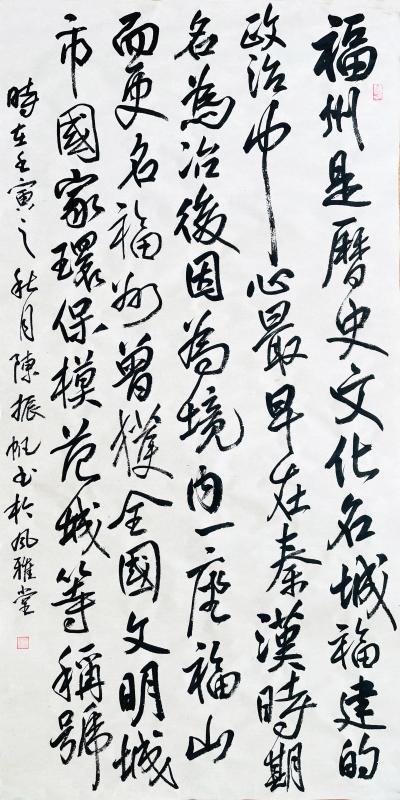 福州是曆史文化名城福建的
政治中心最早在秦漢時期
名為冶後因為境内一座福山
而更名福州曾獲全國文明城
市國家環保模范城等稱號
時在壬寅之秋月陳振帆书於風雅堂